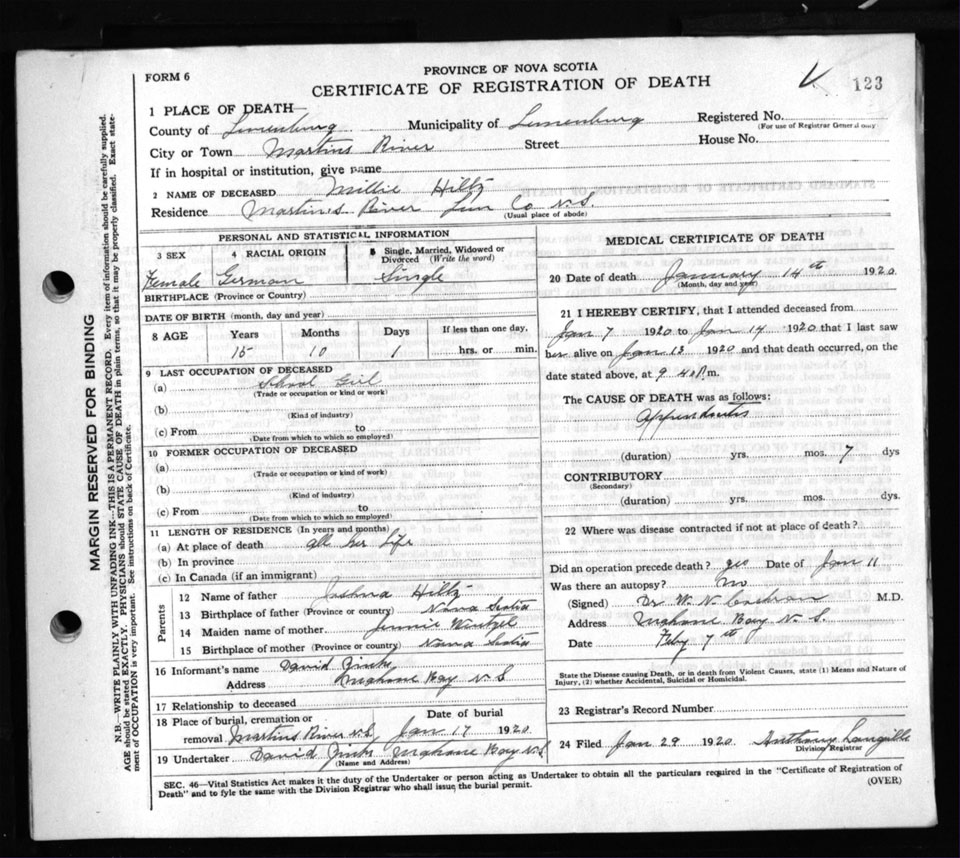 PROVINCE OF NOVA SCOTIA
FORM 6
CERTIFICATE OF REGISTRATION OF DEATH
123
1 PLACE OF DEATH—
County of Lunenburg Municipality of Lunenburg Registered No.
(For use of Registrar General only)
City or Town Martins River Street House No.
If in hospital or institution, give name
2 NAME OF DECEASED Millie Hiltz
Residence Martins River Lun Co N.S.
(Usual place of abode)
PERSONAL AND STATISTICAL INFORMATION
3 SEX 4 RACIAL ORIGIN 5 Single, Married, Widowed or Divorced (Write the word)
Female German Single
BIRTHPLACE (Province or Country)
DATE OF BIRTH (month, day and year)
8 AGE Years Months Days If less than one day,
15 10 1 hrs. or min.
9 LAST OCCUPATION OF DECEASED
(a) School Girl
(Trade or occupation or kind or work)
(b)
(Kind of industry)
(c) From to
(Date from which to which so employed)
10 FORMER OCCUPATION OF DECEASED
(a)
(Trade or occupation or kind of work)
(b)
(Kind of industry)
(c) From to
(Date from which to which so employed)
11 LENGTH OF RESIDENCE (In years and months)
(a) At place of death all her life
(b) In province
(c) In Canada (if an immigrant)
Parents
12 Name of father Joshua Hiltz
13 Birthplace of father (Province or country) Nova Scotia
14 Maiden name of mother Jennie Wentzel
15 Birthplace of mother (Province or country) Nova Scotia
16 Informant's name David Zinck,
Address Mahone Bay N S
17 Relationship to deceased
18 Place of burial, cremation or Date of burial
removal Martins River N.S, Jan 17 1920
19 Undertaker David Zinck Mahone Bay N.S
(Name and Address)
MEDICAL CERTIFICATE OF DEATH
20 Date of death January 14th 1920
(Month, day and year)
21 I HEREBY CERTIFY, that I attended deceased from
Jan 7 1920 to Jan 14 1920 that I last saw
her alive on Jan 13 1920 and that death occurred, on the
date stated above, at 9 40 P.m.
The CAUSE OF DEATH was as follows:
Appendicitis
(duration) yrs. mos. 7 dys
CONTRIBUTORY
(Secondary)
(duration) yrs. mos. dys.
22 Where was disease contracted if not at place of death?
Did an operation precede death? yes Date of Jan 11
Was there an autopsy? no
(Signed) Dr W. N. Cochran M.D.
Address Mahone Bay N. S.
Date Feby 7th
State the Disease causing Death, or in death from Violent Causes, state (1) Means and Nature of
Injury, (2) whether Accidental, Suicidal or Homicidal.
23 Registrar's Record Number
24 Filed Jan 29 1920 Anthony Langille
Division Registrar
SEC. 46—Vital Statistics Act makes it the duty of the Undertaker or person acting as Undertaker to obtain all the particulars required in the "Certificate of Registration of
Death" and to fyle the same with the Division Registrar who shall issue the burial permit.
(OVER)
MARGIN RESERVED FOR BINDING
N.B.—WRITE PLAINLY WITH UNFADING INK—THIS IS A PERMANENT RECORD. Every item of information should be carefully supplied.
AGE should be stated EXACTLY. PHYSICIANS should STATE CAUSE OF DEATH in plain terms, so that it may be properly classified. Exact state-
ment of OCCUPATION is very important. See instructions on back of Certificate.